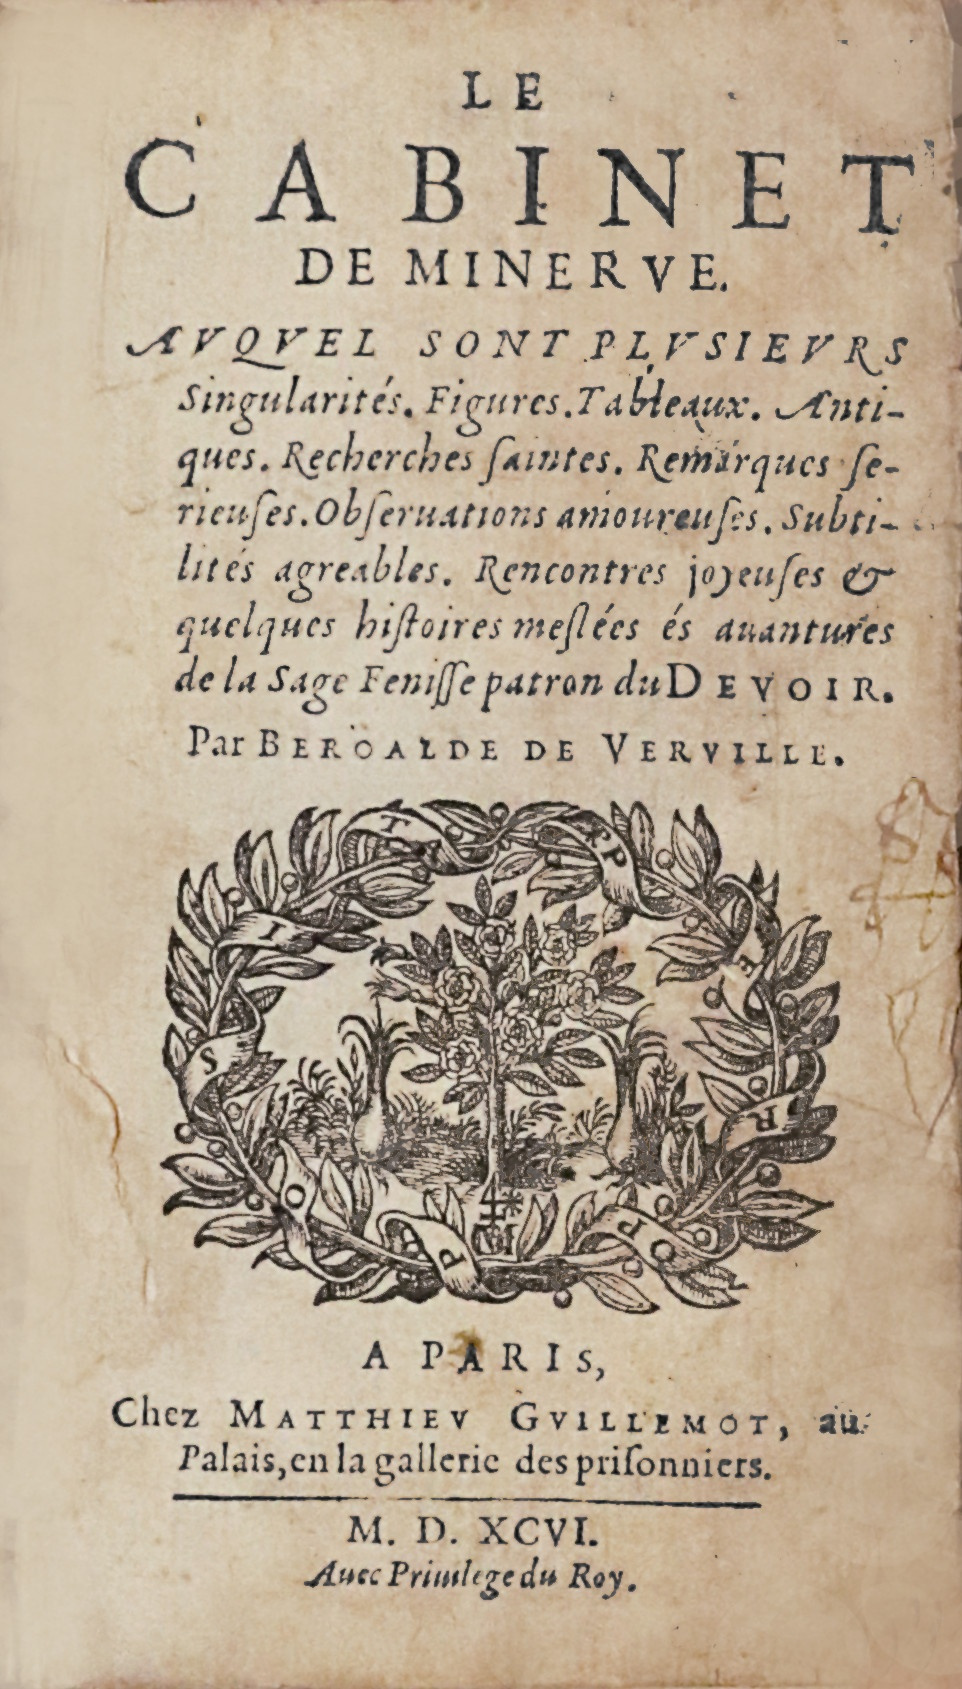 LE
CABINET
DE MINERVE.
AVQVEL SONT PLVSIEVRS
Singularités. Figures. Tableaux. Anti-
ques. Recherches ſaintes. Remarques ſe-
rieuſes. Obſeruations amoureuſes. Subti-
lités agreables. Rencontres joyeuſes &
quelques hiſtoires meſlées és auantures
de la Sage Feniſſe patron du DEVOIR.
Par BEROALDE DE VERVILLE.
P O S I T P E R R O P
A PARIS,
Chez MATTHIEV GVILLEMOT, au
Palais, en la gallerie des priſonniers.
M. D. XCVI.
Auec Priuilege du Roy.